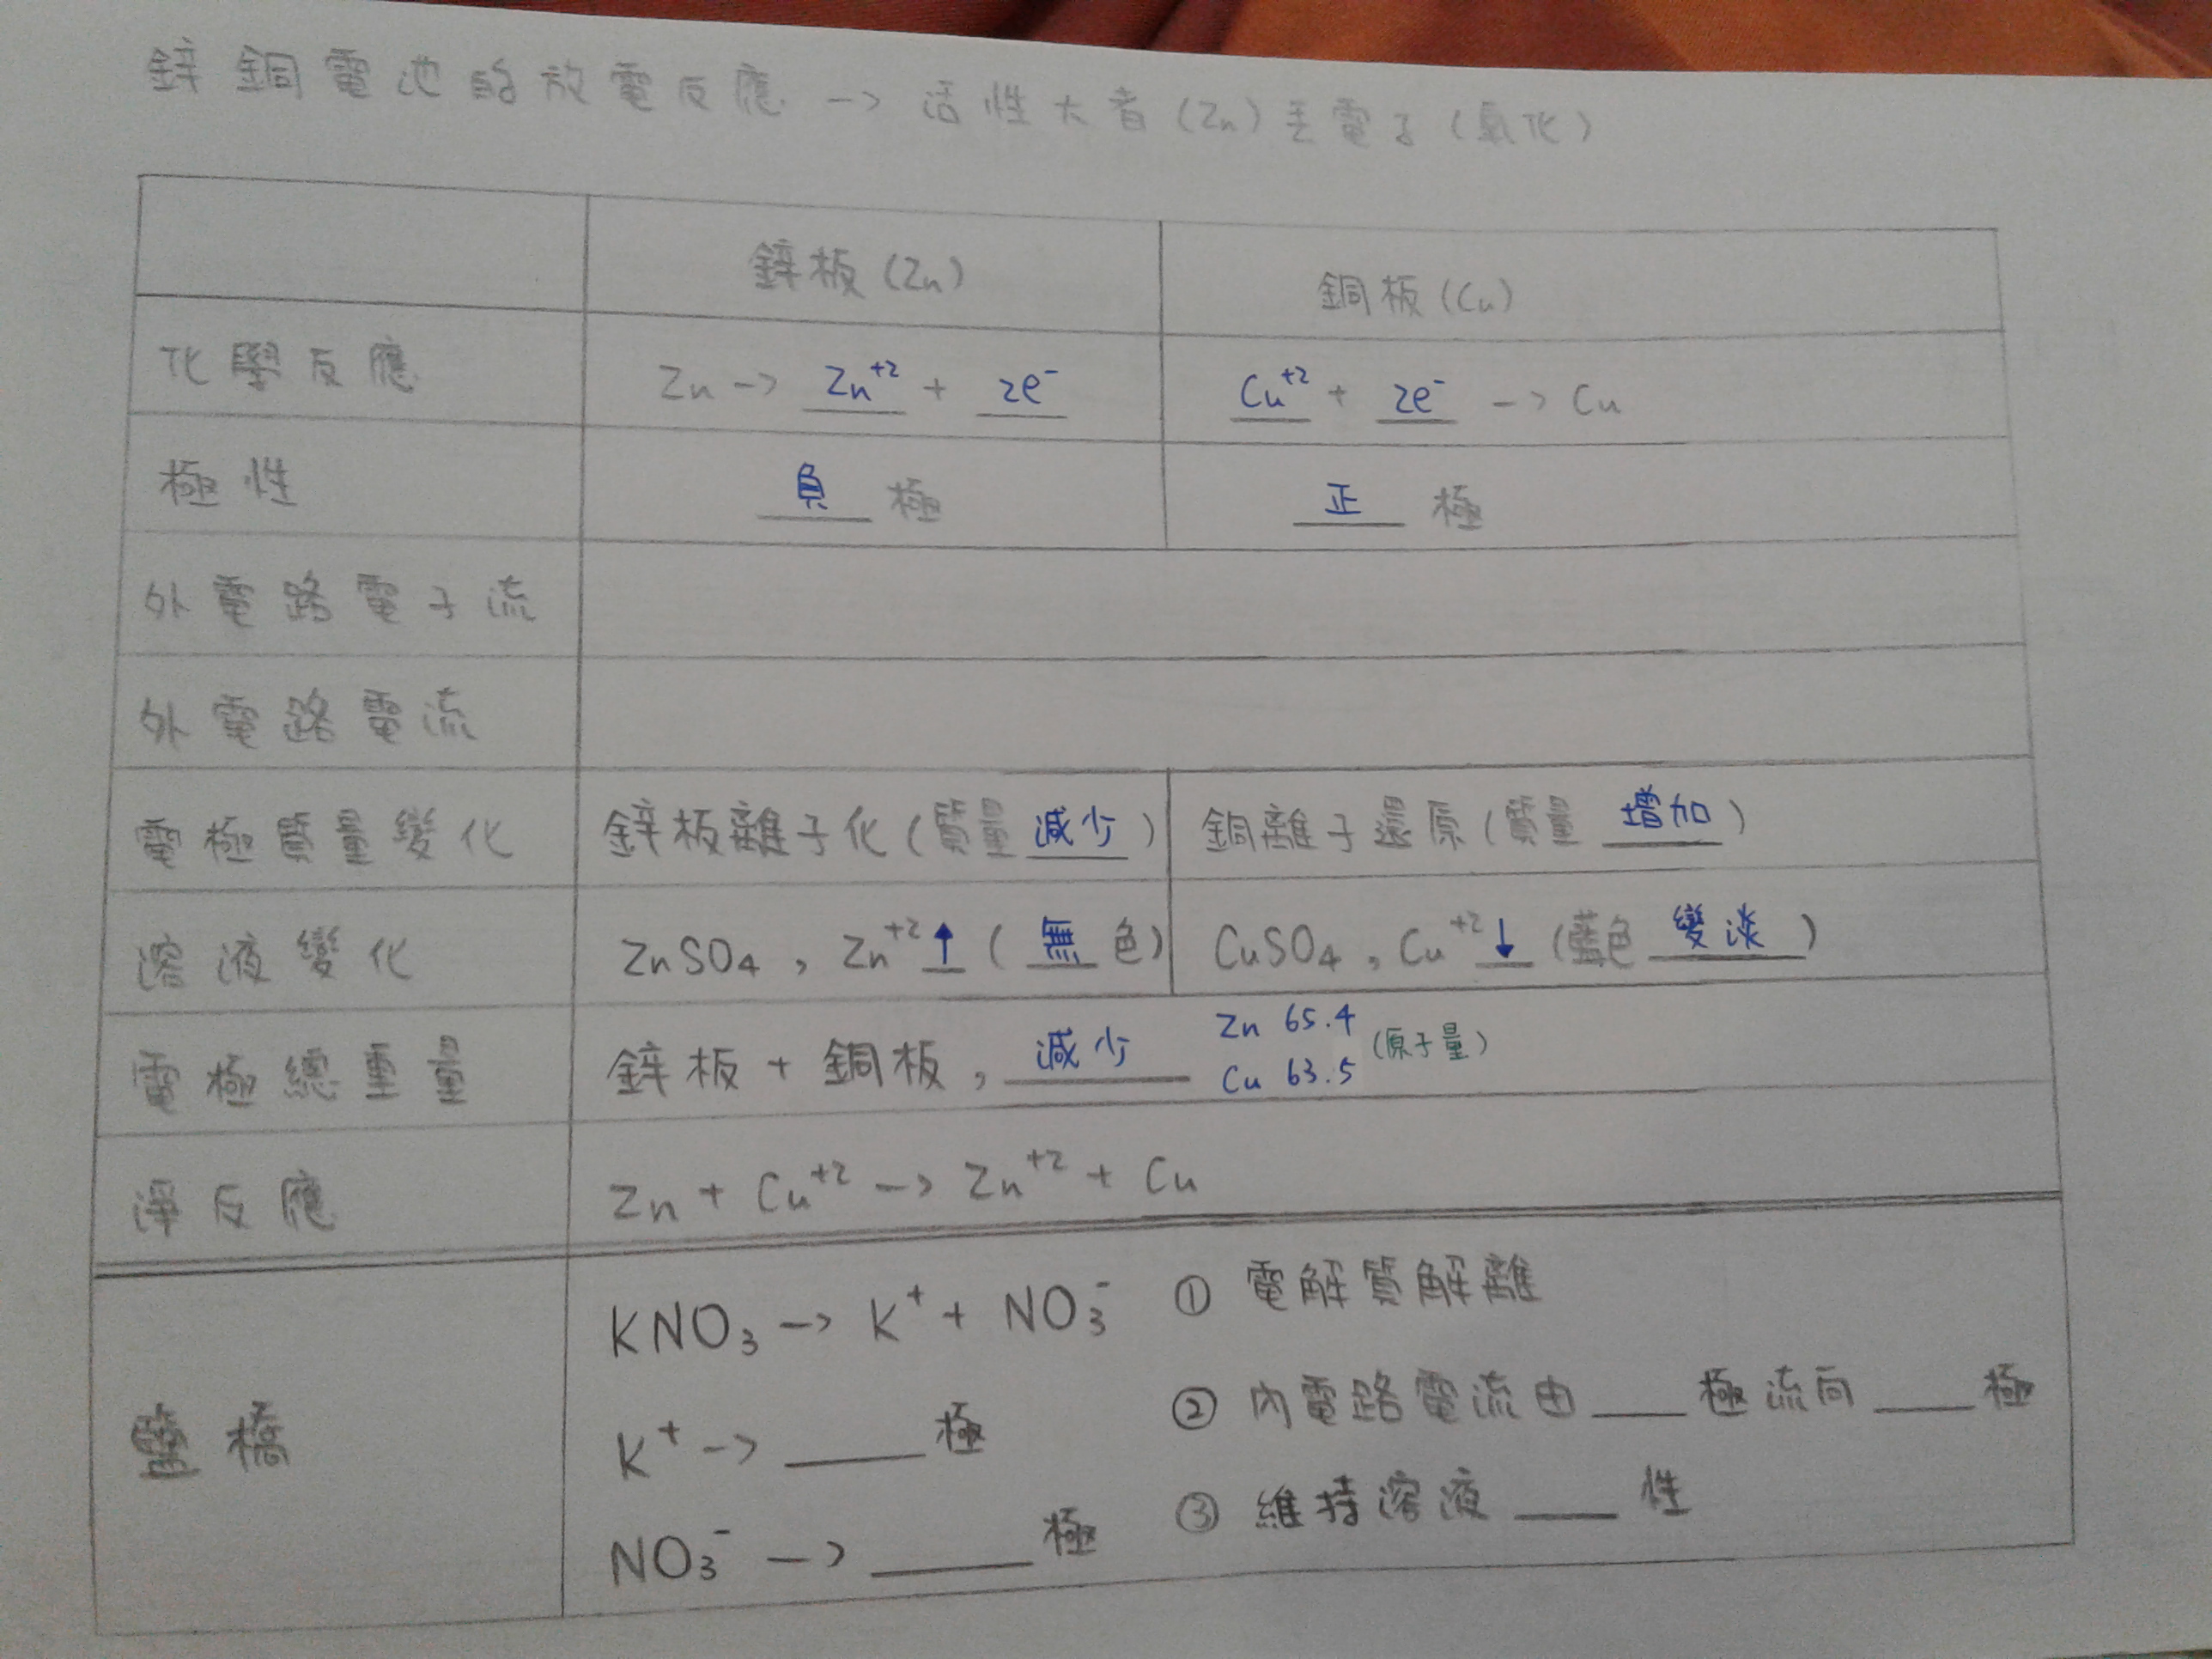 鋅銅電池的放電反應 -> 活性大者(Zn)丟電子(氧化)
鋅板(Zn) 銅板(Cu)
化學反應 Zn -> Zn⁺² + 2e⁻ Cu⁺² + 2e⁻ -> Cu
極性 負極 正極
外電路電子流
外電路電流
電極質量變化 鋅板離子化(質量減少) 銅離子還原(質量增加)
溶液變化 ZnSO₄, Zn⁺²↑(無色) CuSO₄, Cu⁺²↓(藍色變淡)
電極總重量 鋅板+銅板,減少 Zn 65.4 Cu 63.5 (原子量)
淨反應 Zn + Cu⁺² -> Zn⁺² + Cu
鹽橋
KNO₃ -> K⁺ + NO₃⁻ ① 電解質解離
K⁺ -> ____極 ② 內電路電流由___極流向___極
NO₃⁻ -> ____極 ③ 維持溶液___性